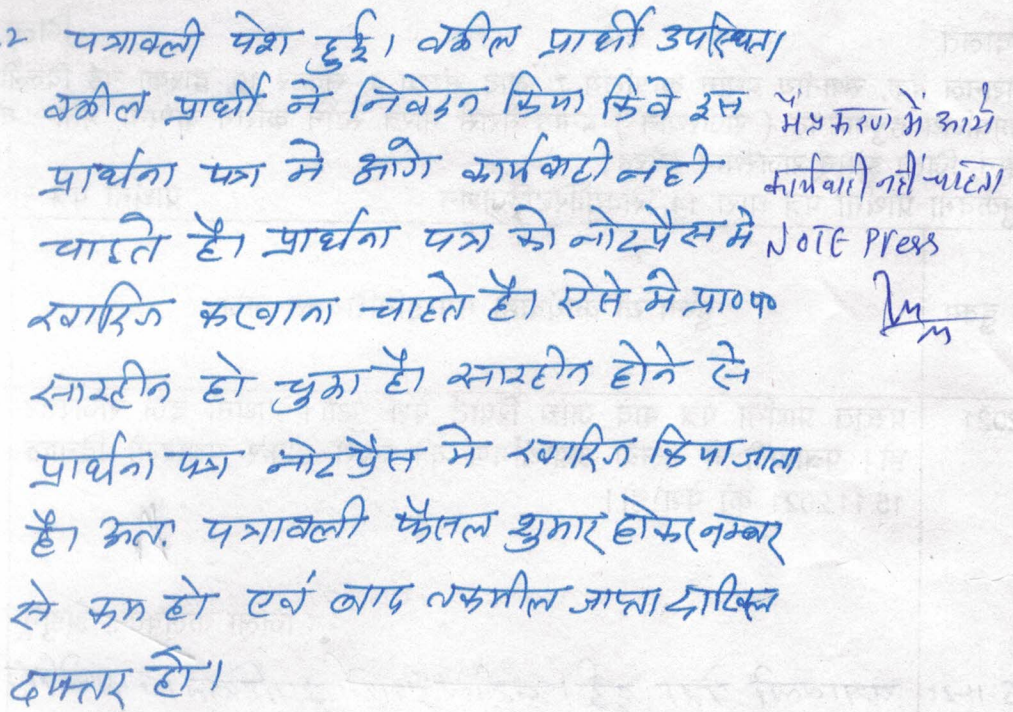 पत्रावली पेश हुई। वकील प्रार्थी उपस्थित।
वकील प्रार्थी ने निवेदन किया कि वे इस
प्रार्थना पत्र मे आगे कार्यवाही नही
चाहते है। प्रार्थना पत्र को नोटप्रैस मे
खारिज करवाना चाहते है। ऐसे मे प्रा०प०
सारहीन हो चुका है। सारहीन होने से
प्रार्थना पत्र नोटप्रैस मे खारिज किया जाता
है। अतः पत्रावली फैसल शुमार होकर नम्बर
से कम हो एवं बाद तकमील जाप्ता दाखिल
दफ्तर हो।
मैं प्रकरण में आगे
कार्यवाही नहीं चाहता
NOTE Press